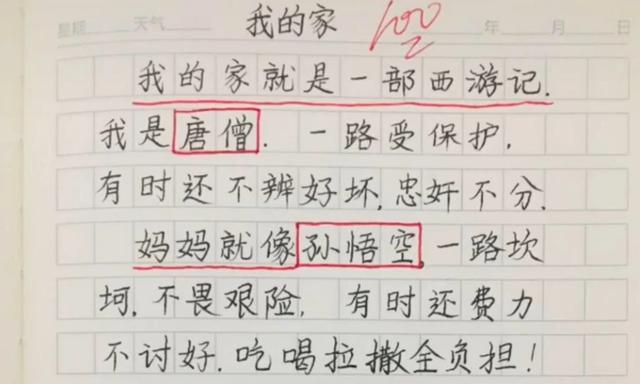 我的家 100
星期 天气 年 月 日
我的家就是一部西游记.
我是唐僧. 一路受保护,
有时还不辨好坏,忠奸不分.
妈妈就像孙悟空,一路坎
坷,不畏艰险, 有时还费力
不讨好.吃喝拉撒全负担!